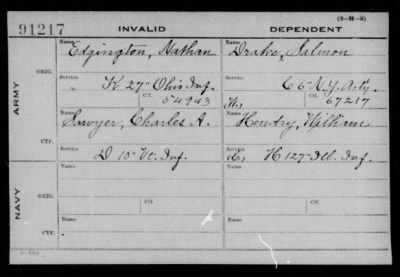 (3-H-3)
91217 INVALID DEPENDENT
Name Edgington, Nathan Name Drake, Salmon
ORIG. Service K 27" Ohio Inf. Service C 6" N.Y. Arty.
Ctf. 54943 W. Ctf. 67217
ARMY
Name Sawyer, Charles A. Name Hendry, William
CTF. Service D 10" Vt. Inf. Service H 127" Ill. Inf.
Name Name
ORIG. Service Ctf. Service Ctf.
NAVY
Name Name
CTF. Service Service